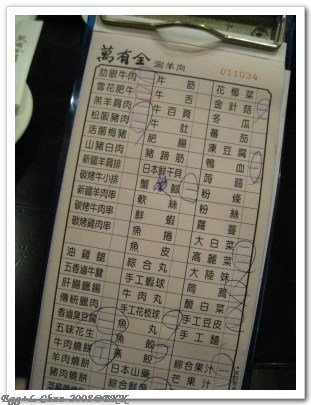 萬有全 涮羊肉
011034
肋眼牛肉 牛筋 花椰菜
雪花肥牛 牛舌 金針菇
羔羊肩肉 牛百頁 冬瓜
松阪豬肉 牛肚 蕃茄
活菌梅豬 肥腸 凍豆腐
山豬白肉 豬蹄筋 鴨血
新疆羊肩排 日本鮮干貝 蒟蒻
碳烤牛小排 蟹腳 粉絲
新疆羊肉串 軟絲 粉條
碳烤牛肉串 鮮蝦 蘿蔔
碳烤雞肉串 魚捲 大白菜
魚皮 高麗菜
油雞腿 綜合丸 大陸妹
五香滷牛腱 手工蝦球 茼蒿
肝腸臘腸 牛肉丸 酸白菜
傳統臘肉 手工花枝球 手工豆皮
香滷臭豆腐 魚丸 手工麵
五味花生 魚餃
牛肉燒餅 燕餃 綜合果汁
羊肉燒餅 日本山藥 芒果汁
豬肉燒餅 綜合鮮